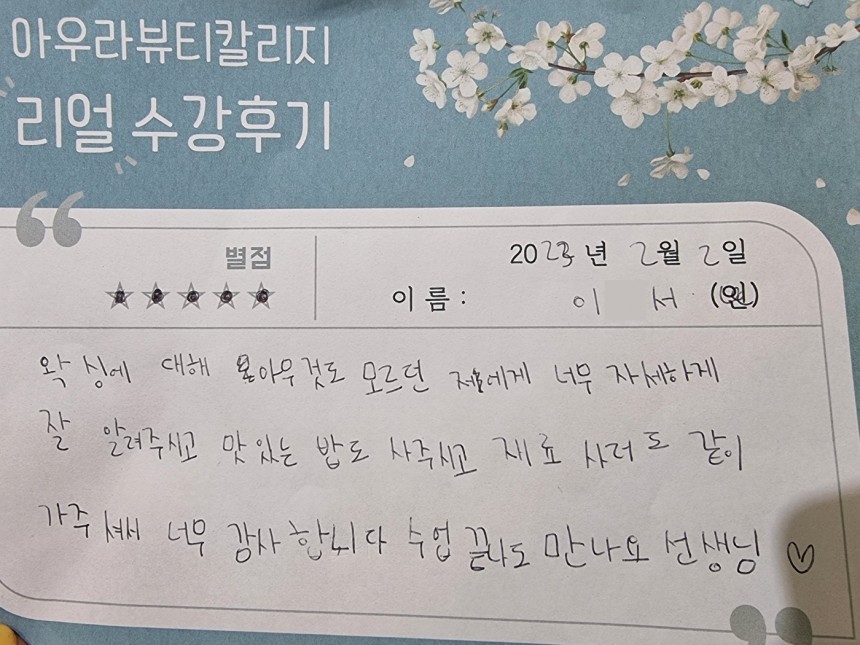 아우라뷰티칼리지
리얼 수강후기
별점
2023년 2월 2일
이름: 이 서 (원)
왁싱에 대해 아무것도 모르던 저에게 너무 자세하게
잘 알려주시고 맛있는 밥도 사주시고 재료 사러도 같이
가주셔서 너무 감사합니다 수업 끝나도 만나요 선생님 ♡